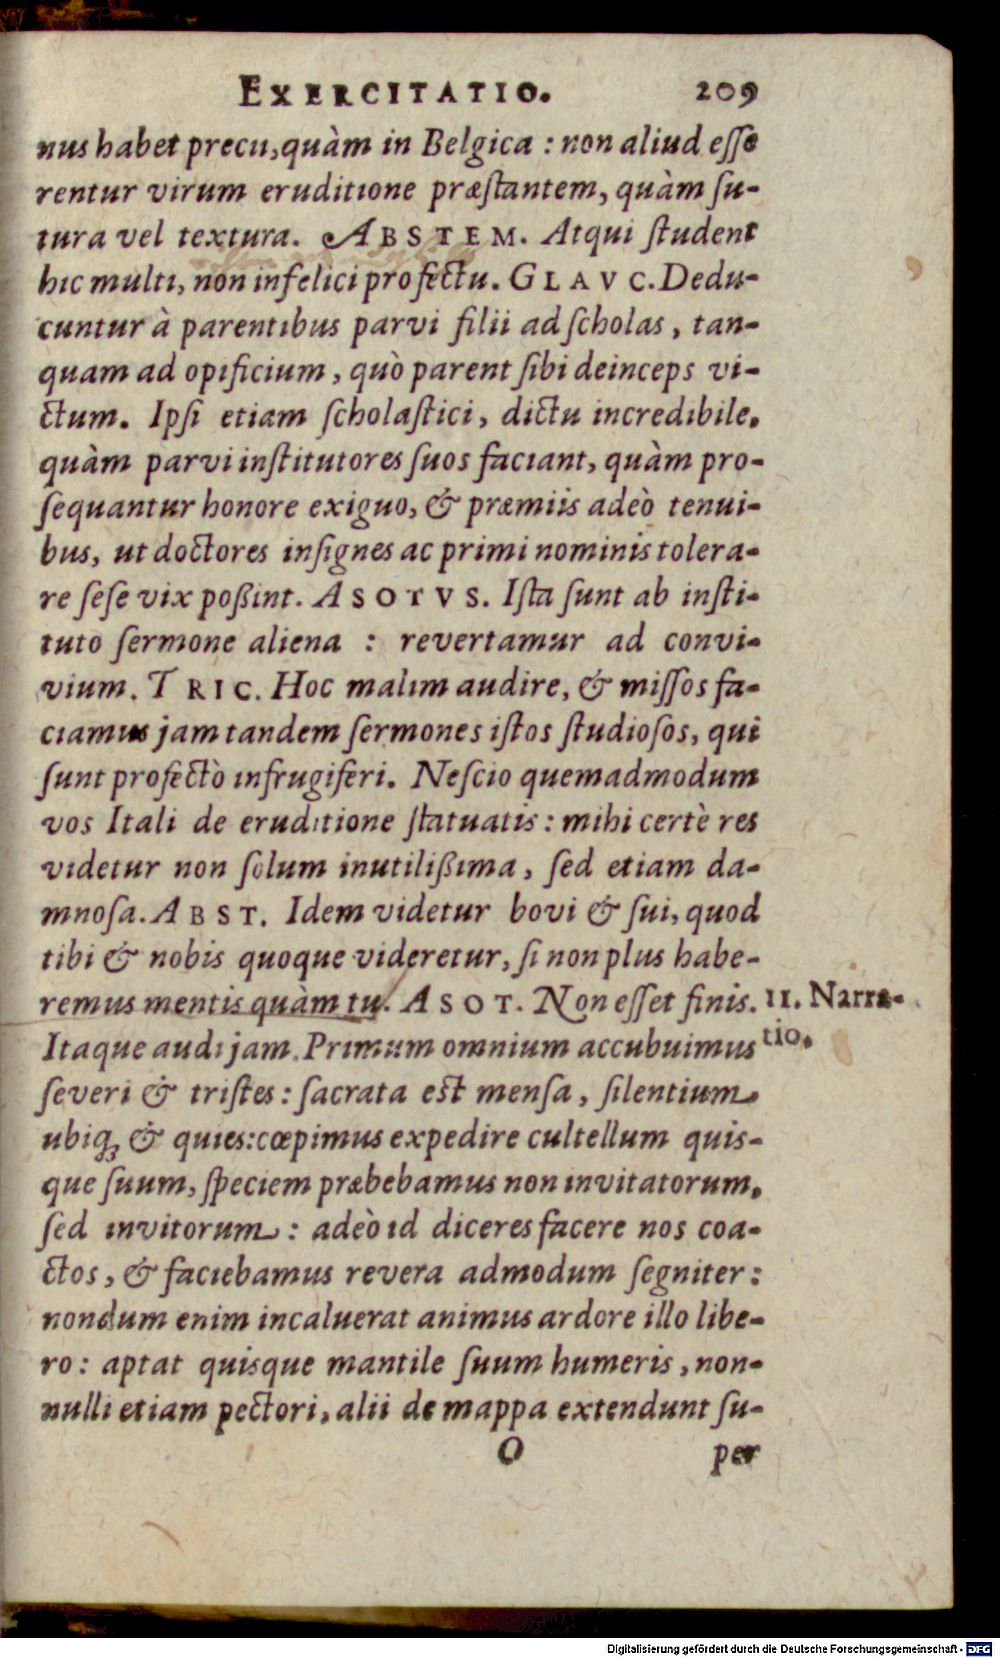 EXERCITATIO. 209
nus habet precii, quàm in Belgica : non aliud esse
rentur virum eruditione præstantem, quàm su-
tura vel textura. ABSTEM. Atqui student
hic multi, non infelici profectu. GLAVC. Dedu-
cuntur à parentibus parvi filii ad scholas, tan-
quam ad opificium, quò parent sibi deinceps vi-
ctum. Ipsi etiam scholastici, dictu incredibile,
quàm parvi institutores suos faciant, quàm pro-
sequantur honore exiguo, & præmiis adeò tenui-
bus, ut doctores insignes ac primi nominis tolera-
re sese vix poßint. ASOTVS. Ista sunt ab insti-
tuto sermone aliena : revertamur ad convi-
vium. TRIC. Hoc malim audire, & missos fa-
ciamus jam tandem sermones istos studiosos, qui
sunt profectò infrugiferi. Nescio quemadmodum
vos Itali de eruditione statuatis : mihi certè res
videtur non solum inutilißima, sed etiam da-
mnosa. ABST. Idem videtur bovi & sui, quod
tibi & nobis quoque videretur, si non plus habe-
remus mentis quàm tu. ASOT. Non esset finis. II. Narra-
Itaque audi jam. Primum omnium accubuimus tio.
severi & tristes : sacrata est mensa, silentium
ubiq; & quies: cœpimus expedire cultellum quis-
que suum, speciem præbebamus non invitatorum,
sed invitorum : adeò id diceres facere nos coa-
ctos, & faciebamus revera admodum segniter :
nondum enim incaluerat animus ardore illo libe-
ro : aptat quisque mantile suum humeris, non-
nulli etiam pectori, alii de mappa extendunt su-
O per
Digitalisierung gefördert durch die Deutsche Forschungsgemeinschaft - DFG